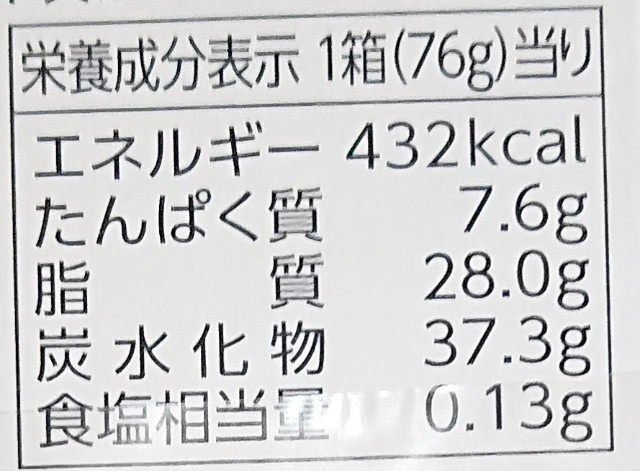 栄養成分表示 1箱(76g)当り
エネルギー 432kcal
たんぱく質 7.6g
脂質 28.0g
炭水化物 37.3g
食塩相当量 0.13g